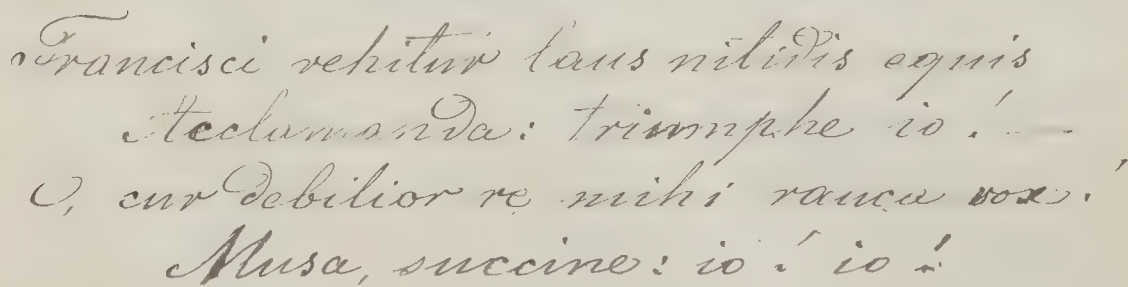 Francisci vehitur laus nitidis equis
Acclamanda: triumphe io! -
O, cur debilior re mihi rauca vox!
Musa, succine: io! io!